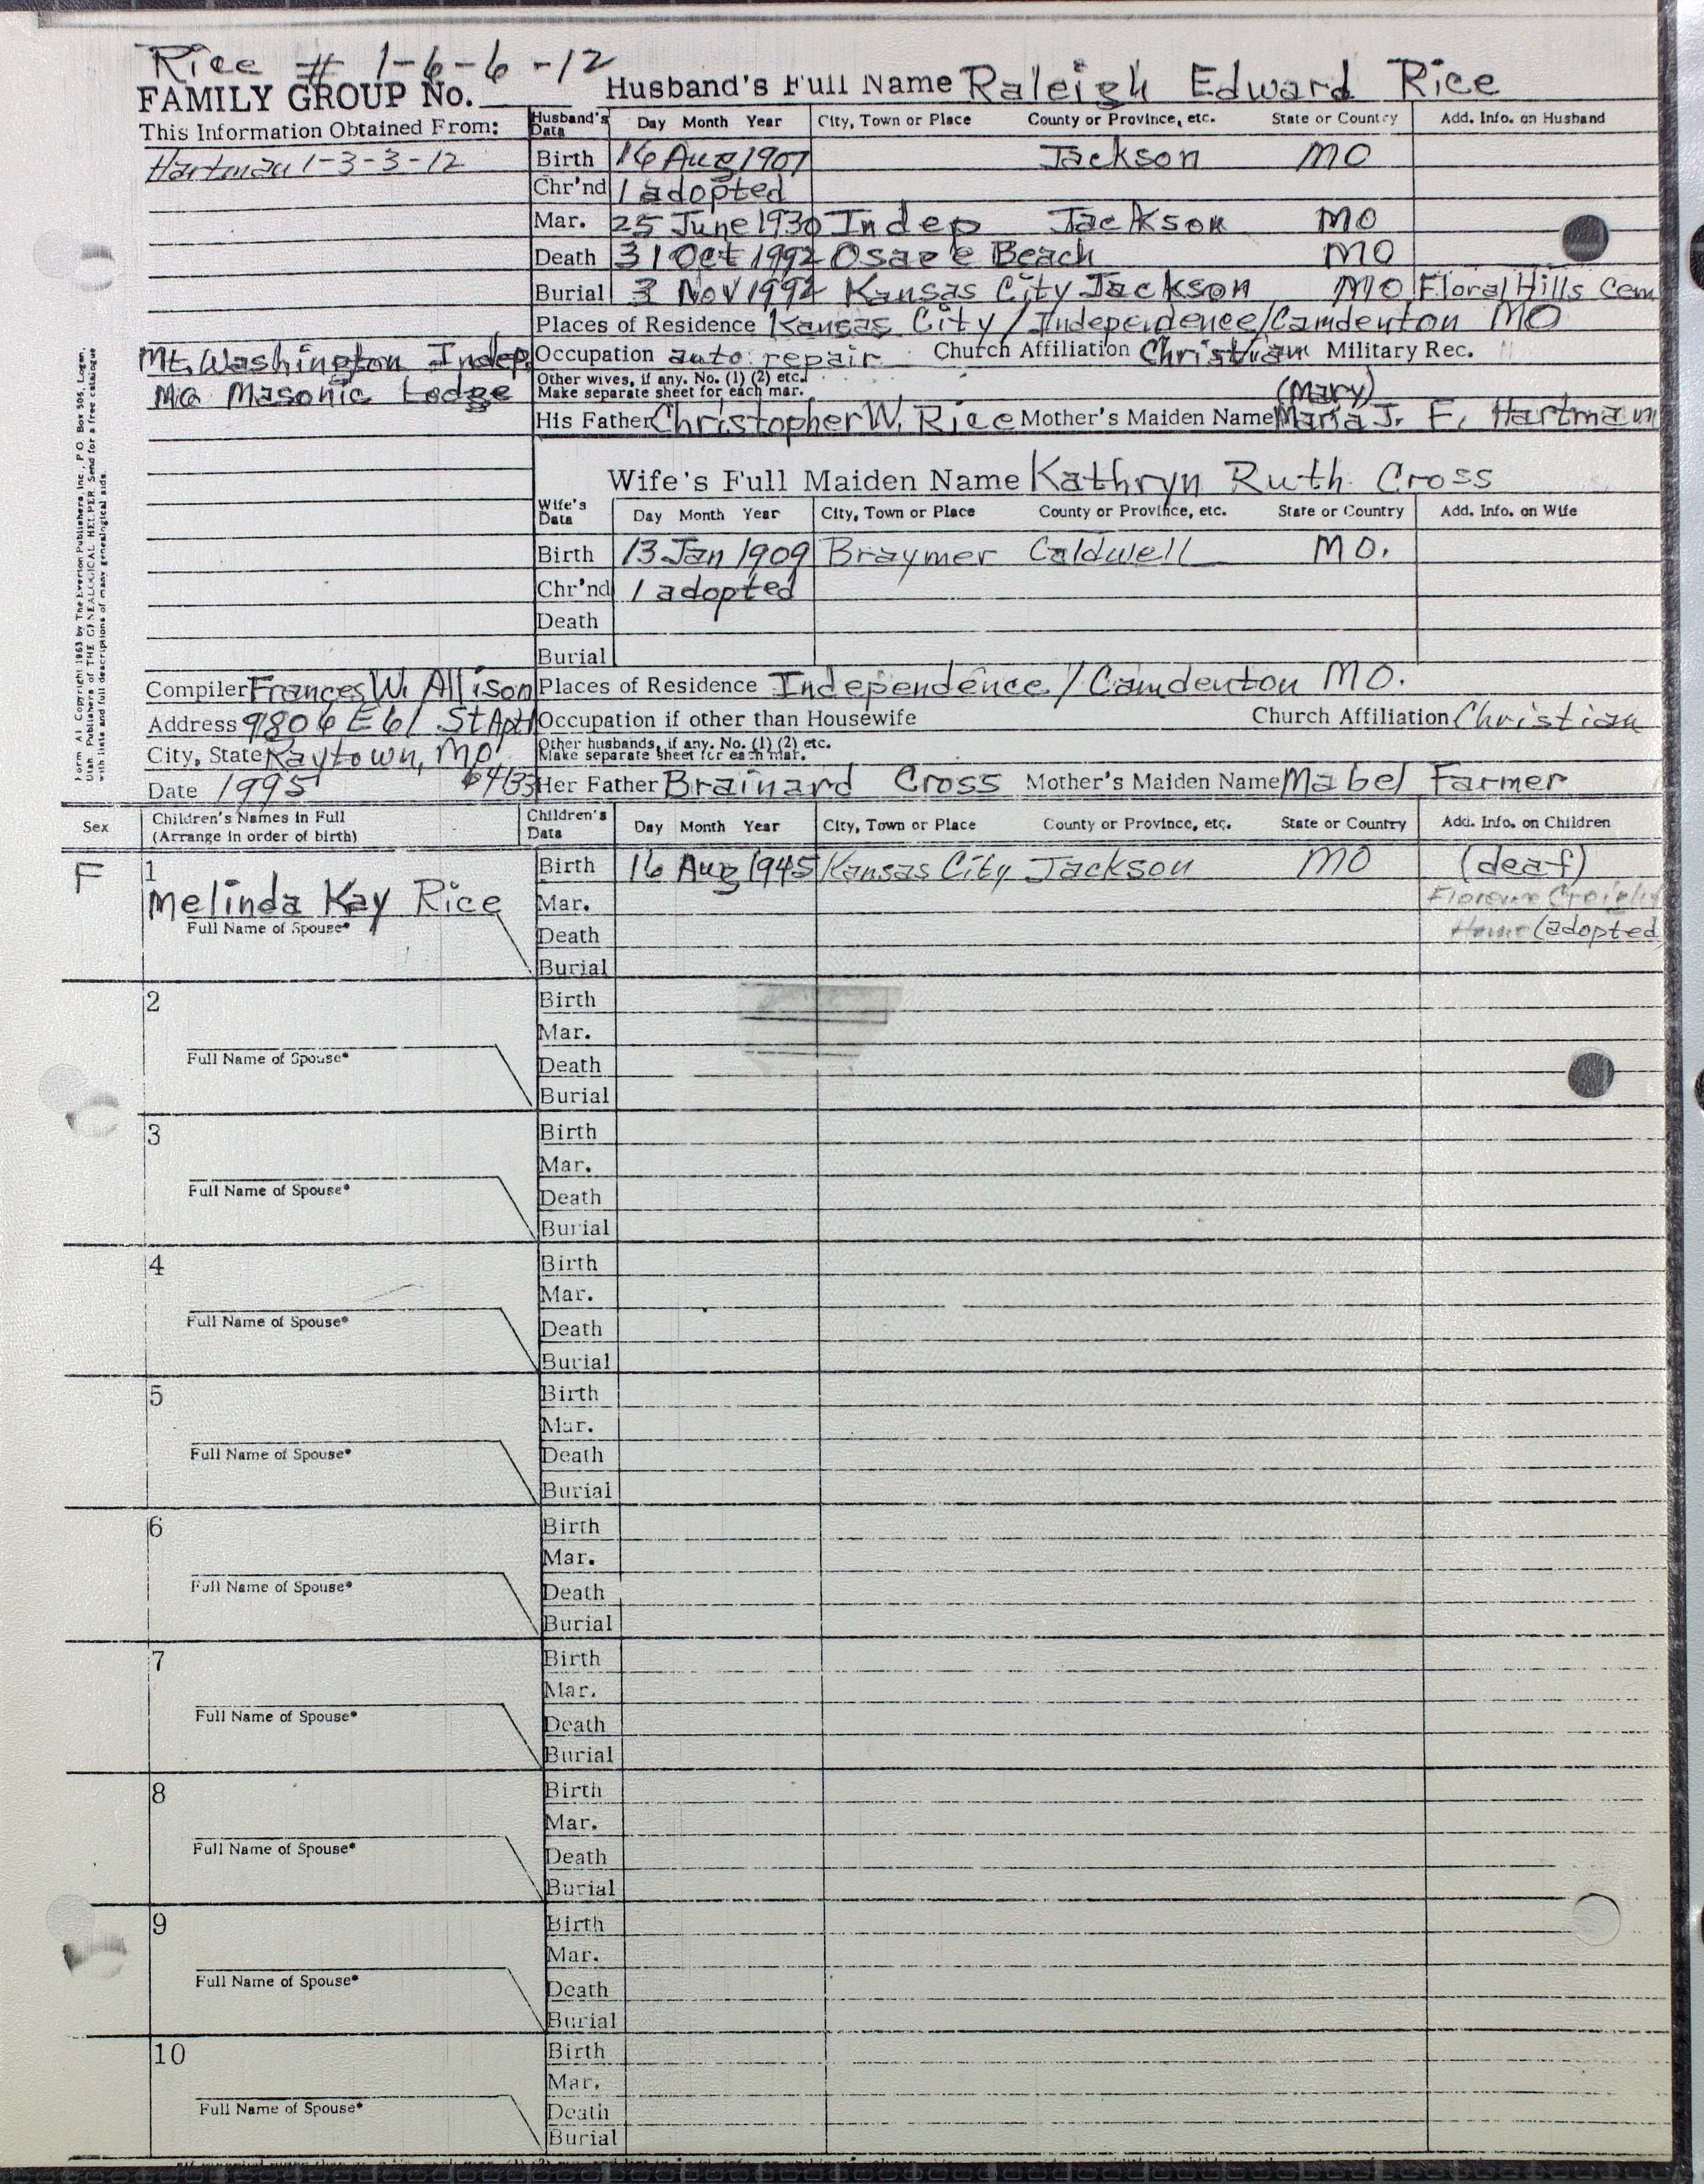 Rice # 1-6-6-12
FAMILY GROUP No. Husband's Full Name Raleigh Edward Rice
This Information Obtained From: Husband's Data Day Month Year City, Town or Place County or Province, etc. State or Country Add. Info. on Husband
Hartman 1-3-3-12 Birth 16 Aug 1907 Jackson MO
Chr'nd 1 adopted
Mar. 25 June 1930 Indep Jackson MO
Death 31 Oct 1992 Osage Beach MO
Burial 3 Nov 1992 Kansas City Jackson MO Floral Hills Cem
Places of Residence Kansas City / Independence/Camdenton MO
Mt. Washington Indep. Occupation auto repair Church Affiliation Christian Military Rec.
Mo Masonic Lodge Other wives, if any. No. (1) (2) etc.
Make separate sheet for each mar.
(Mary)
His Father Christopher W. Rice Mother's Maiden Name Maria J. F. Hartmann
Wife's Full Maiden Name Kathryn Ruth Cross
Wife's Data Day Month Year City, Town or Place County or Province, etc. State or Country Add. Info. on Wife
Birth 13 Jan 1909 Braymer Caldwell MO.
Chr'nd 1 adopted
Death
Burial
Compiler Frances W. Allison Places of Residence Independence / Camdenton MO.
Address 9806 E 61 St Apt Occupation if other than Housewife Church Affiliation Christian
City, State Raytown, Mo Other husbands, if any. No. (1) (2) etc.
Make separate sheet for each mar.
Date 1995 64133 Her Father Brainard Cross Mother's Maiden Name Mabel Farmer
Form A1 Copyright 1963 by The Everton Publishers, Inc., P.O. Box 505, Logan,
Utah Publishers of THE GENEALOGICAL HELPER. Send for a free catalogue
with lists and full descriptions of many genealogical aids.
Sex Children's Names in Full
(Arrange in order of birth) Children's Data Day Month Year City, Town or Place County or Province, etc. State or Country Add. Info. on Children
F 1 Birth 16 Aug 1945 Kansas City Jackson MO (deaf)
Melinda Kay Rice Mar. Florence
Full Name of Spouse* Death Home (adopted
Burial
2 Birth
Mar.
Full Name of Spouse* Death
Burial
3 Birth
Mar.
Full Name of Spouse* Death
Burial
4 Birth
Mar.
Full Name of Spouse* Death
Burial
5 Birth
Mar.
Full Name of Spouse* Death
Burial
6 Birth
Mar.
Full Name of Spouse* Death
Burial
7 Birth
Mar.
Full Name of Spouse* Death
Burial
8 Birth
Mar.
Full Name of Spouse* Death
Burial
9 Birth
Mar.
Full Name of Spouse* Death
Burial
10 Birth
Mar.
Full Name of Spouse* Death
Burial